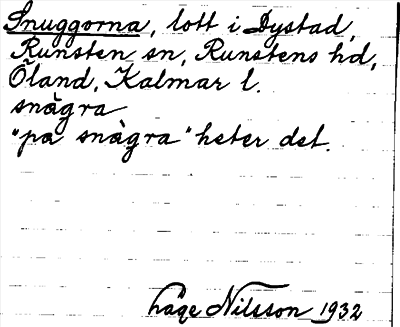 Snuggorna, lott i Dystad,
Runsten sn, Runstens hd,
Öland, Kalmar l.
snågra
"på snågra" heter det.
Åage Nilsson 1932